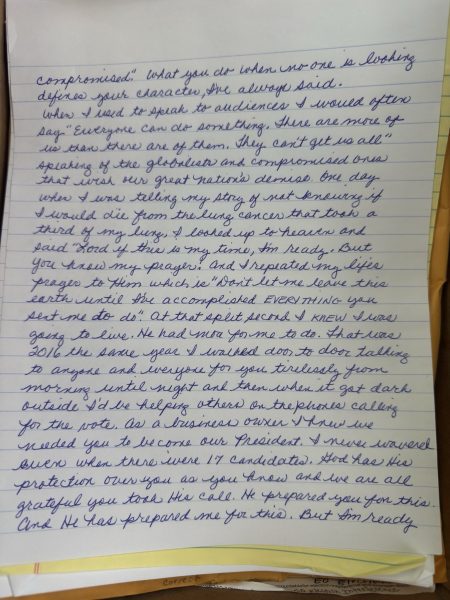 compromised." What you do when no one is looking
defines your character, I've always said.
When I used to speak to audiences I would often
say "Everyone can do something. There are more of
us than there are of them. They can't get us all"
speaking of the globalists and compromised ones
that wish our great nation's demise. One day
when I was telling my story of not knowing if
I would die from the lung cancer that took a
third of my lung, I looked up to heaven and
said "Lord if this is my time, I'm ready. But
You know my prayer. And I repeated my life's
prayer to Him which is "Don't let me leave this
earth until I've accomplished EVERYTHING you
sent me to do". At that split second I KNEW I was
going to live. He had more for me to do. That was
2016 the same year I walked door to door talking
to anyone and everyone for you tirelessly from
morning until night and then when it got dark
outside I'd be helping others on the phones calling
for the vote. As a business owner I knew we
needed you to become our President. I never wavered
even when there were 17 candidates. God has His
protection over you as you know and we are all
grateful you took His call. He prepared you for this.
And He has prepared me for this. But I'm ready